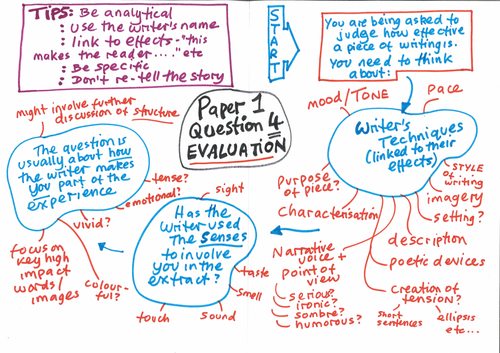 TIPS: Be analytical
: Use the writer's name
: link to effects - "this
makes the reader....." etc
: Be specific
: Don't re-tell the story
START
You are being asked to
judge how effective
a piece of writing is.
You need to think
about:
Paper 1
Question 4
EVALUATION
mood/TONE
pace
Writer's
Techniques
(linked to their
effects)
STYLE
of
writing
imagery
setting?
description
poetic devices
Creation of
tension?
short
sentences
ellipsis
etc...
Purpose
of piece?
Characterisation
Narrative
voice +
point of
view
serious?
ironic?
sombre?
humorous?
Has the
writer used
The Senses
to involve
you in the
extract?
sight
taste
smell
sound
touch
might involve further
discussion of structure
The question is
usually about how
the writer makes
you part of the
experience
tense?
emotional?
vivid?
colour-
ful?
focus on
key high
impact
words/
images